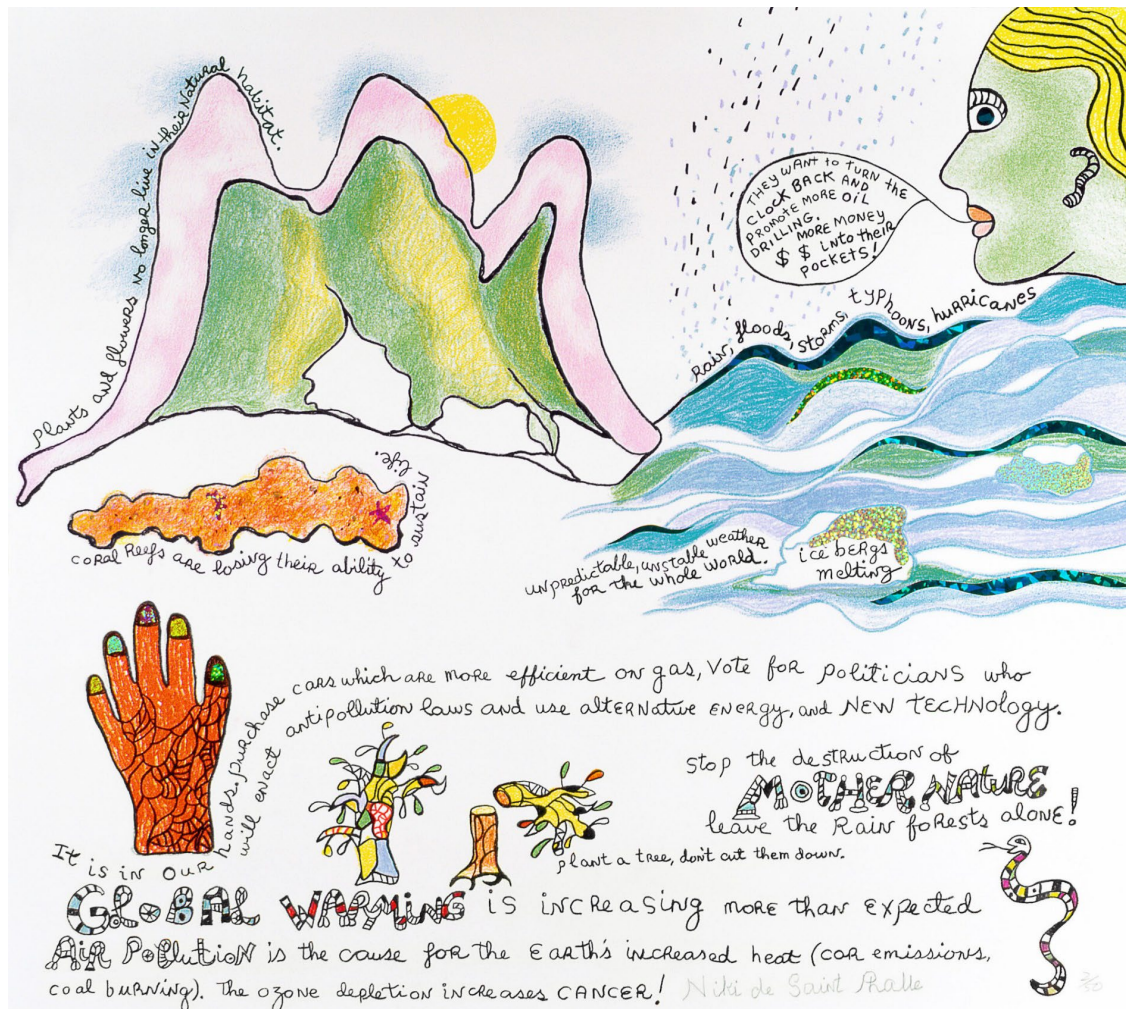 Plants and flowers no longer live in their Natural habitat.
THEY WANT TO TURN THE
CLOCK BACK AND
PROMOTE MORE OIL
DRILLING.
MORE MONEY
$ $ INTO their
POCKETS!
Rain, floods, storms, typhoons, hurricanes
coral Reefs are losing their ability to sustain life.
unpredictable, unstable weather
for the whole world.
ice bergs
melting
It is in our hands, purchase cars which are more efficient on gas, Vote for politicians who
will enact antipollution laws and use alternative energy, and NEW TECHNOLOGY.
Stop the destruction of
MOTHER NATURE
leave the Rain forests alone!
plant a tree, don't cut them down.
GLOBAL WARMING is increasing more than expected
Air Pollution is the cause for the Earth's increased heat (car emissions,
coal burning). The ozone depletion increases CANCER! Niki de Saint Phalle